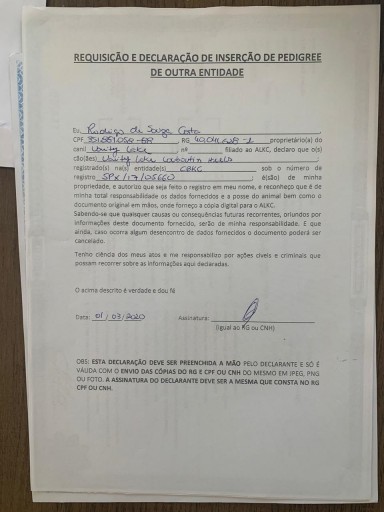 REQUISIÇÃO E DECLARAÇÃO DE INSERÇÃO DE PEDIGREE
DE OUTRA ENTIDADE
Eu, Rodrigo de Souza Costa
CPF RG proprietário(a) do
canil Vanity Lake, nº filiado ao ALKC, declaro que o(s)
cão(ães) Vanity Lake
registrado(s) na(s) entidade(s) CBKC sob o número de
registro SPX/17/05660 é(são) de minha
propriedade, e autorizo que seja feito o registro em meu nome, e reconheço que é de
minha total responsabilidade os dados fornecidos e a posse do animal bem como o
documento original em mãos, onde forneço a copia digital para o ALKC.
Sabendo-se que quaisquer causas ou consequências futuras recorrentes, oriundos por
informações deste documento fornecido, serão de minha responsabilidade. E que
ainda, caso ocorra algum desencontro de dados fornecidos o documento poderá ser
cancelado.
Tenho ciência dos meus atos e me responsabilizo por ações cíveis e criminais que
possam recorrer as informações aqui declaradas.
O acima descrito é verdade e dou fé
Data: 01/03/2020 Assinatura:
(igual ao RG ou CNH)
OBS: ESTA DECLARAÇÃO DEVE SER PREENCHIDA A MÃO PELO DECLARANTE E SÓ É
VÁLIDA COM O ENVIO DAS CÓPIAS DO RG E CPF OU CNH DO MESMO EM JPEG, PNG
OU FOTO. A ASSINATURA DO DECLARANTE DEVE SER A MESMA QUE CONSTA NO RG
CPF OU CNH.